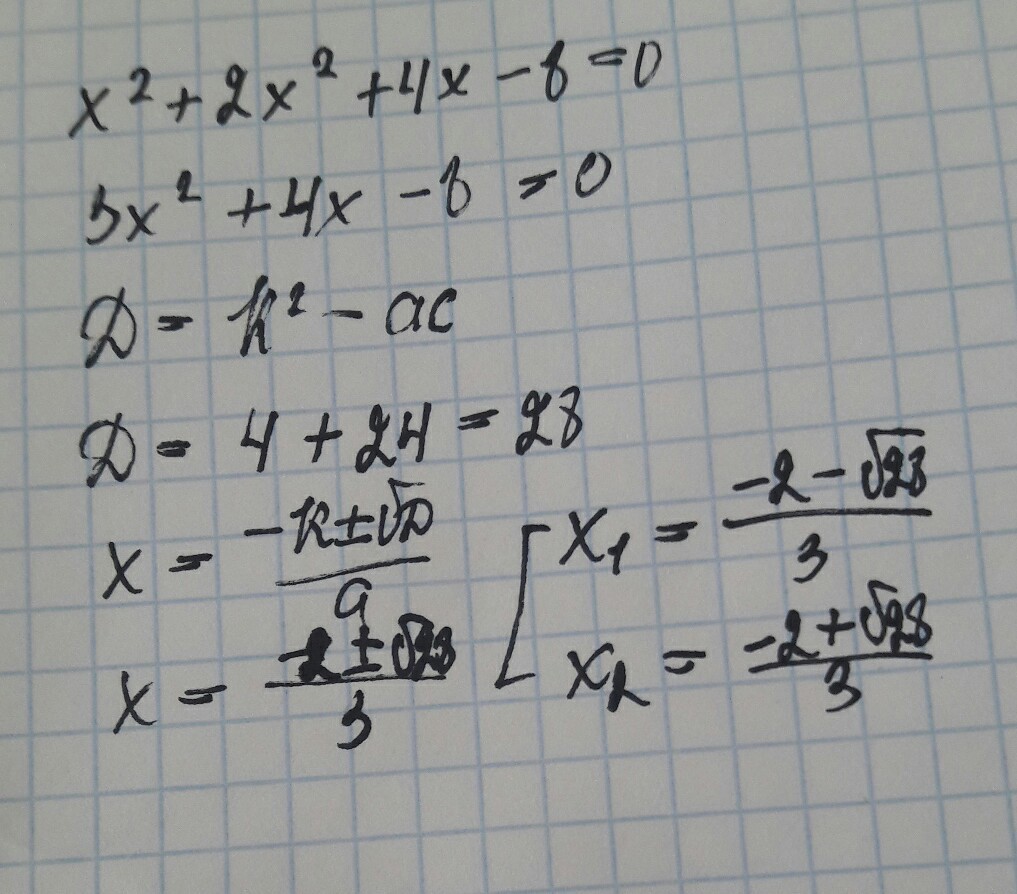 x² + 2x² + 4x - 8 = 0
3x² + 4x - 8 = 0
D = k² - ac
D = 4 + 24 = 28
x = (-k ± √D) / a
x = (-2 ± √28) / 3
[ x₁ = (-2 - √28) / 3
x₂ = (-2 + √28) / 3